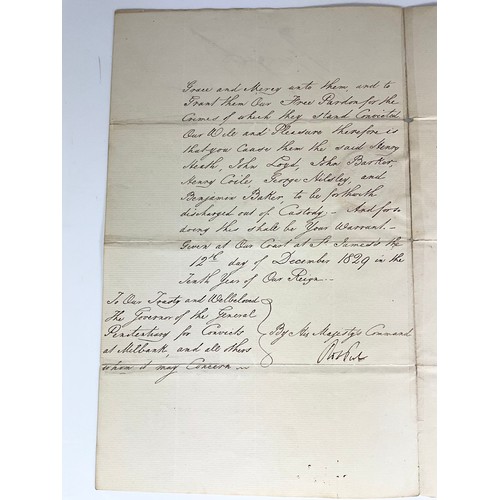 Grace and Mercy unto them, and to
Grant them Our Free Pardon for the
Crimes of which they stand Convicted
Our Will and Pleasure therefore is
that you Cause them the said Henry
Heath, John Loyd, John Barker,
Henry Coile, George Hilsley, and
Benjamin Baker, to be forthwith
discharged out of Custody – And for so
doing this shall be Your Warrant. –
Given at Our Court at St James's the
12th day of December 1829 in the
Tenth Year of Our Reign. –
To Our Trusty and Welbeloved
The Governor of the General
Penitentiary for Convicts
at Milbank, and all others
whom it may Concern –
By His Majesty's Command